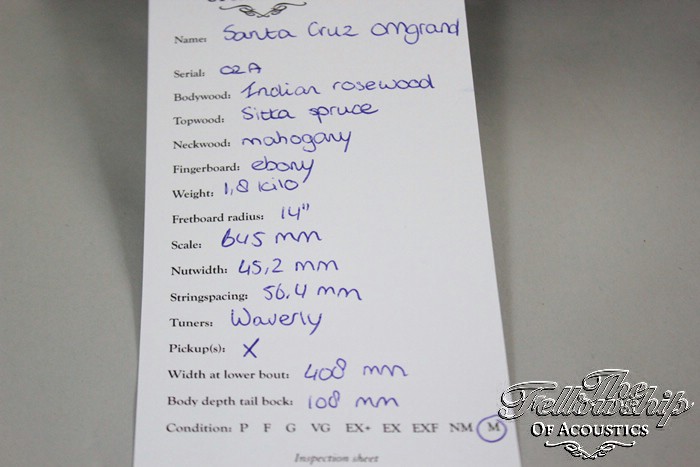 Name: Santa Cruz OMgrand
Serial: 02A
Bodywood: Indian rosewood
Topwood: Sitka spruce
Neckwood: mahogany
Fingerboard: ebony
Weight: 1,8 kilo
Fretboard radius: 14"
Scale: 645 mm
Nutwidth: 45,2 mm
Stringspacing: 56,4 mm
Tuners: Waverly
Pickup(s): X
Width at lower bout: 408 mm
Body depth tail bock: 108 mm
Condition: P F G VG EX+ EX EXF NM M
Inspection sheet
The
Fellowship
Of Acoustics